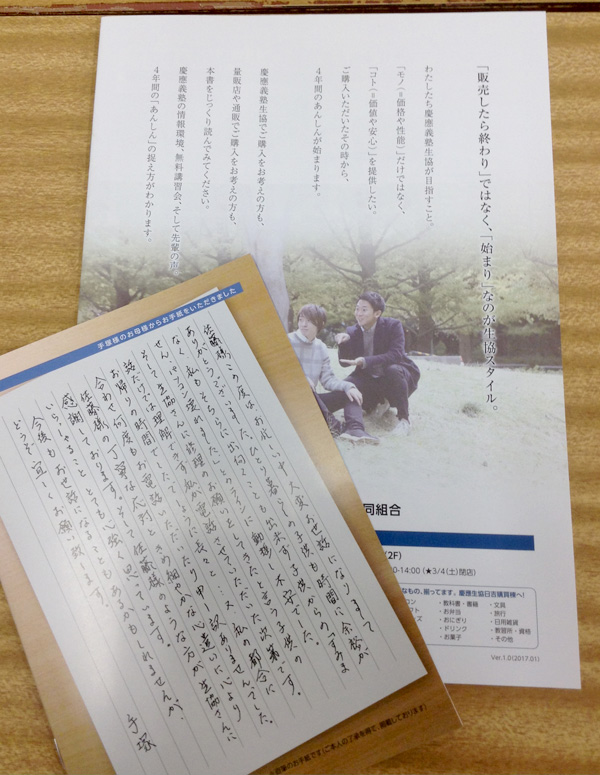 「販売したら終わり」ではなく、「始まり」なのが生協スタイル。
わたしたち慶應義塾生協が目指すこと、
「モノ(=価格や性能)」だけではなく、
「コト(=価値や安心)」を提供したい。
ご購入いただいたその時から、
4年間のあんしんが始まります。
慶應義塾生協でご購入をお考えの方も、
量販店や通販でご購入をお考えの方も、
本書をじっくり読んでみてください。
慶應義塾の情報環境、無料講習会、そして先輩の声
4年間の「あんしん」の捉え方がわかります。
同組合
(2F)
0-14:00 (★3/4(土)閉店)
なもの、揃ってます。慶應生協日吉購買棟へ!
・教科書・書籍
・お弁当
・おにぎり
・ドリンク
・お菓子
・文具
・旅行
・日用雑貨
・教習所・資格
・その他
Ver.1.0(2017.01)
手塚様のお母様からお手紙をいただきました
佐藤様、この度は、お忙しい中大変お世話になりまして
ありがとうございました。ひとり暮らしの子供も時間に余裕が
なく、私もそちらに出向くことも出来ず、子供からの「すみま
せん、パソコン壊れました」のラインに動揺し不安でした。
そして、生協さんに修理のお願いをしてきたと言う子供の
話だけでは理解しきれず私が電話させていただいた次第です。
お帰りの時間でしたでしょうに長々と…又、私の都合に
合わせ何度もお電話いただいたり申し訳ありませんでした。
佐藤様の丁寧な応対ときめ細やかな心遣いに心より
感謝しております。そして、佐藤様のような方が生協さんに
いらっしゃること、とても心強く思っています。
今後もお世話になることもあるかもしれませんが、
どうぞ宜しくお願い致します。
手塚
のお手紙です(ご本人の了承を得て、掲載しております)